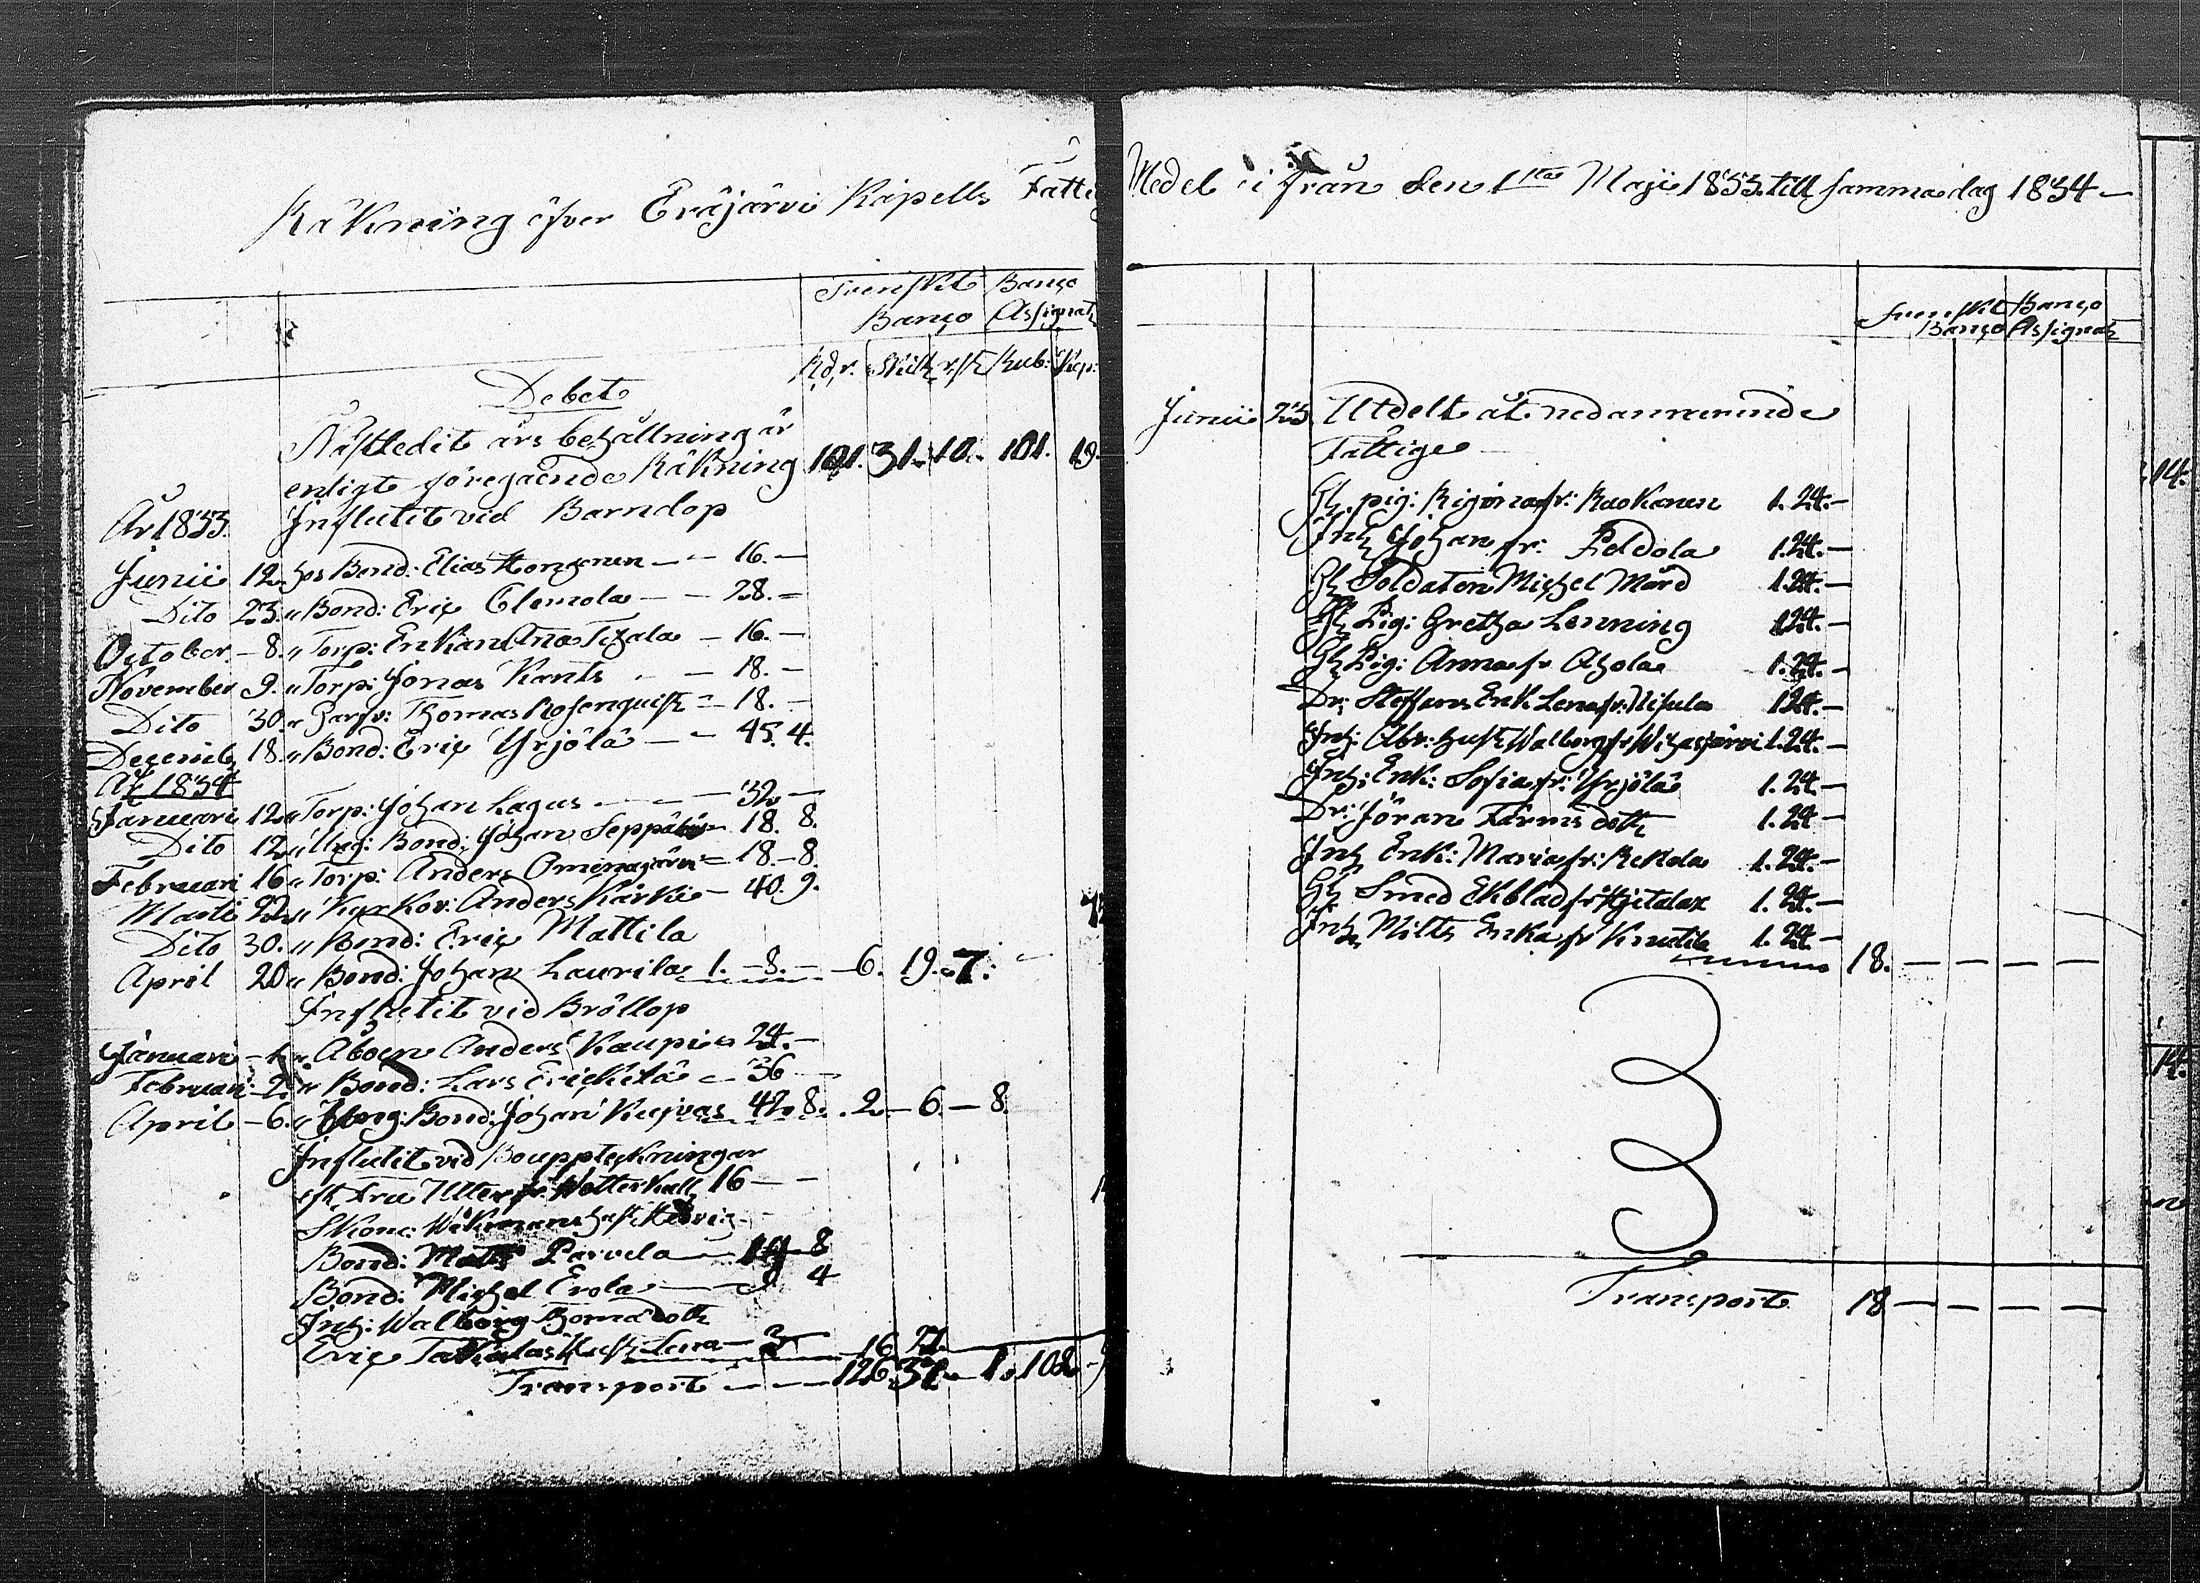 Räkning öfver Eräjärvi Kapells Fatti
Svenskt Banco
Banco Assignat
Rdr. Skill. r.st. Rub: Kop:
Debet
Nästledit års behållning är
enligt föregående Räkning 101. 31. 10. 101. 19.
År 1833. Influtit vid Barndop
Junii 12. hos Bond: Elias Hongonen — 16. —
Dito 23. " Bond: Eric Clemola — 28. —
October. — 8. " Torp: Enkan Ana Tihala — 16. —
November 9. " Torp: Jonas Kants — 18. —
Dito 30. " Garfv: Thomas Rosenquist — 18. —
Decemb. 18. " Bond: Eric Yrjölä — 45. 4.
År 1834
Januari 12. " Torp: Johan Lagus — 32 —
Dito 12. " Ung: Bond: Johan Seppälä — 18. 8.
Februari 16 " Torp: Anders Omenajärvi — 18. — 8.
Marti 22. " Kyrkov: Anders Kärki — 40. 9.
Dito 30. " Bond: Eric Mattila
April 20 " Bond: Johan Laurila 1. — 8. — 6. 19. 7.
Influtit vid Bröllop
Januari — " Åboen Anders Kaupi 24. —
Februari — 2. " Bond: Lars Erickilä — 36 —
April — 6. " Bond: Johan Kujvas 42. 8. 2. — 6. — 8.
Influtit vid Bouppteckningar
eft. Fru Utter fr. Wetterkull 16 — —
Skom: Wikmans hust. Hedvig
Bond: Matts Parvela — 14 8
Bond: Michel Erola — 9. 4
Inh: Walborg Thomædotr
Eric hust. Lena — 3 16 22
Transport — — — 126. 31. — 1. 102
Medel ifrån den 1ta Maji 1833. till samma dag 1834 —
Svenskt Banco
Banco Assignat
Junii 23 Utdelt åt nedanvarende
Fattige
Gl. pig: Regina fr: Raokanen 1. 24. —
Inh Johan fr: Peldola 1. 24. —
Gl Soldaten Michel Mård 1. 24. —
Gl Pig: Gretha Lenning 1. 24. —
Gl Pig: Anna fr Ahola 1. 24. —
Dr: Steffans Enk. Lena fr: Nisula 1. 24. —
Inh: Abr: hust Walborg fr Wihasjärvi 1. 24. —
Inh: Enk: Sofia fr: Yrjölä 1. 24. —
Dr: Jöran Färms dotr 1. 24 —
Inh Enk: Maria fr: Rekola 1. 24. —
Gl Smed Ekblad fr Hjetalax 1. 24. —
Inh Milts Enka fr Knutila 1. 24 —
18. — — — —
Transport 18 — — — —
14.
14.